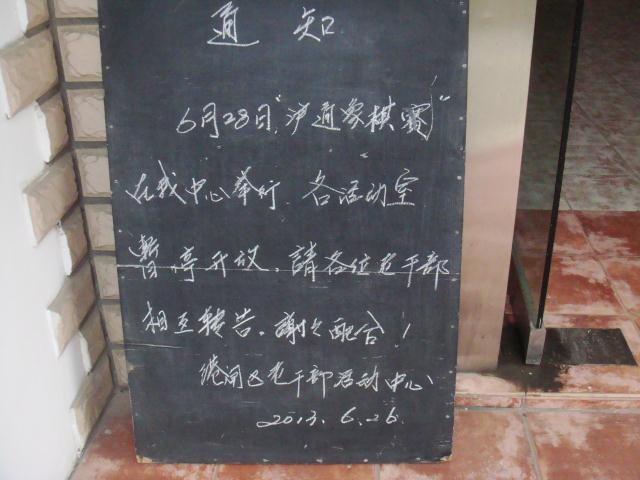 通知
6月28日，"沪通象棋赛"
在我中心举行，各活动室
暫停开放，請各位老干部
相互转告。謝々配合！
港闸区老干部活动中心
2013.6.26.